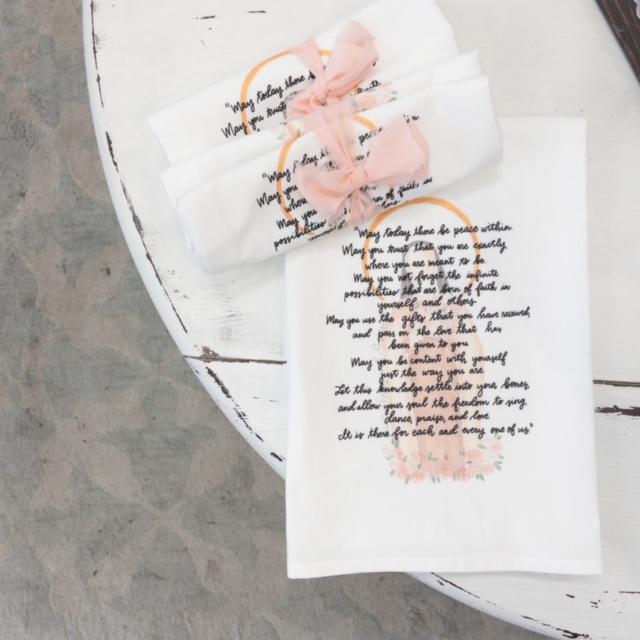 "May today there
May you trust
"May today
May
there
you
possibilities
of faith in
"May today there be peace within
May you trust that you are exactly
where you are meant to be
May you not forget the infinite
possibilities that are born of faith in
yourself and others
May you use the gifts that you have received,
and pass on the love that has
been given to you
May you be content with yourself
just the way you are
Let this knowledge settle into your bones,
and allow your soul the freedom to sing,
dance, praise, and love
It is there for each and every one of us"